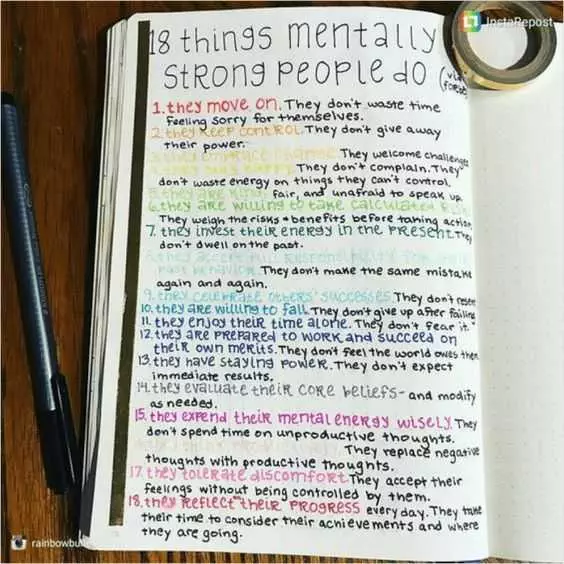 InstaRepost
18 things mentally
strong people do (via
1. they move on. They don't waste time
feeling sorry for themselves.
2. they keep control. They don't give away
their power.
3. they embrace change. They welcome challenges
They don't complain. They
don't waste energy on things they can't control.
5. they are kind, fair, and unafraid to speak up.
6. they are willing to take calculated
They weigh the risks + benefits before taking action
7. they invest their energy in the present. They
don't dwell on the past.
8. they accept full responsibility for their
past behavior. They don't make the same mistake
again and again.
9. they celebrate others' successes. They don't resent
10. they are willing to fail. They don't give up after failing
11. they enjoy their time alone. They don't fear it.
12. they are prepared to work and succeed on
their own merits. They don't feel the world owes them
13. they have staying power. They don't expect
immediate results.
14. they evaluate their core beliefs - and modify
as needed.
15. they expend their mental energy wisely. They
don't spend time on unproductive thoughts.
They replace negative
thoughts with productive thoughts.
17. they tolerate discomfort. They accept their
feelings without being controlled by them.
18. they reflect their progress every day. They take
their time to consider their achievements and where
they are going.